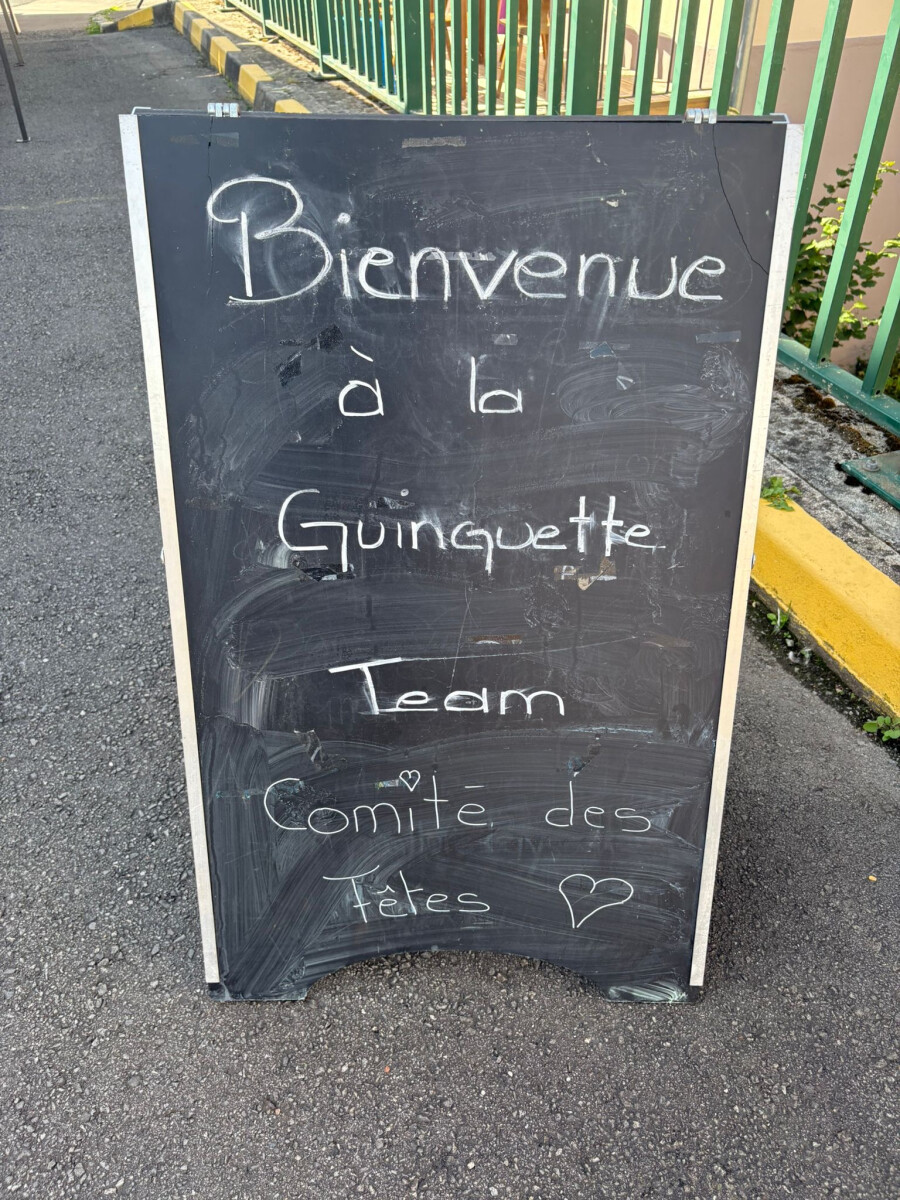 Bienvenue
à la
Guinguette
Team
Comité des
Fêtes ♡